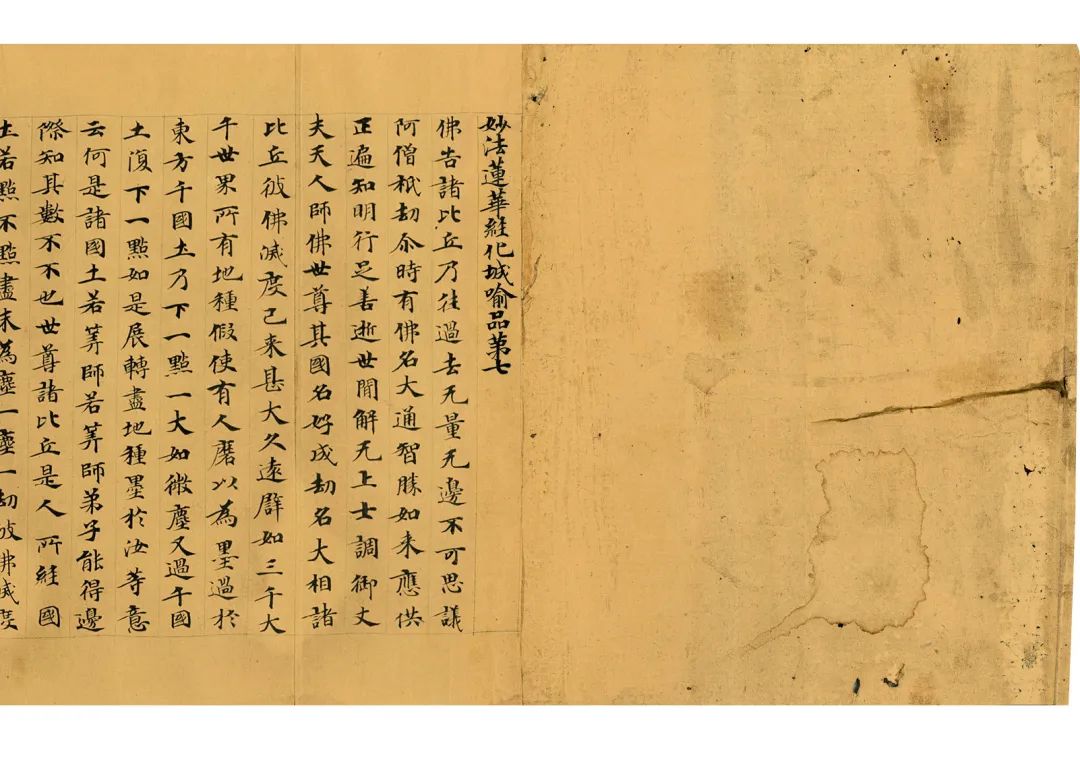 妙法蓮華經化城喻品第七
佛告諸比丘乃往過去无量无邊不可思議
阿僧祇劫尒時有佛名大通智勝如来應供
正遍知明行足善逝世閒解无上士調御丈
夫天人師佛世尊其國名好成劫名大相諸
比丘彼佛滅度已来甚大久遠辟如三千大
千世界所有地種假使有人磨以為墨過於
東方千國土乃下一點一大如微塵又過千國
土復下一點如是展轉盡地種墨於汝等意
云何是諸國土若筭師若筭師弟子能得邊
際知其數不不也世尊諸比丘是人所經國
土若點不點盡末為塵一塵一劫彼佛滅度